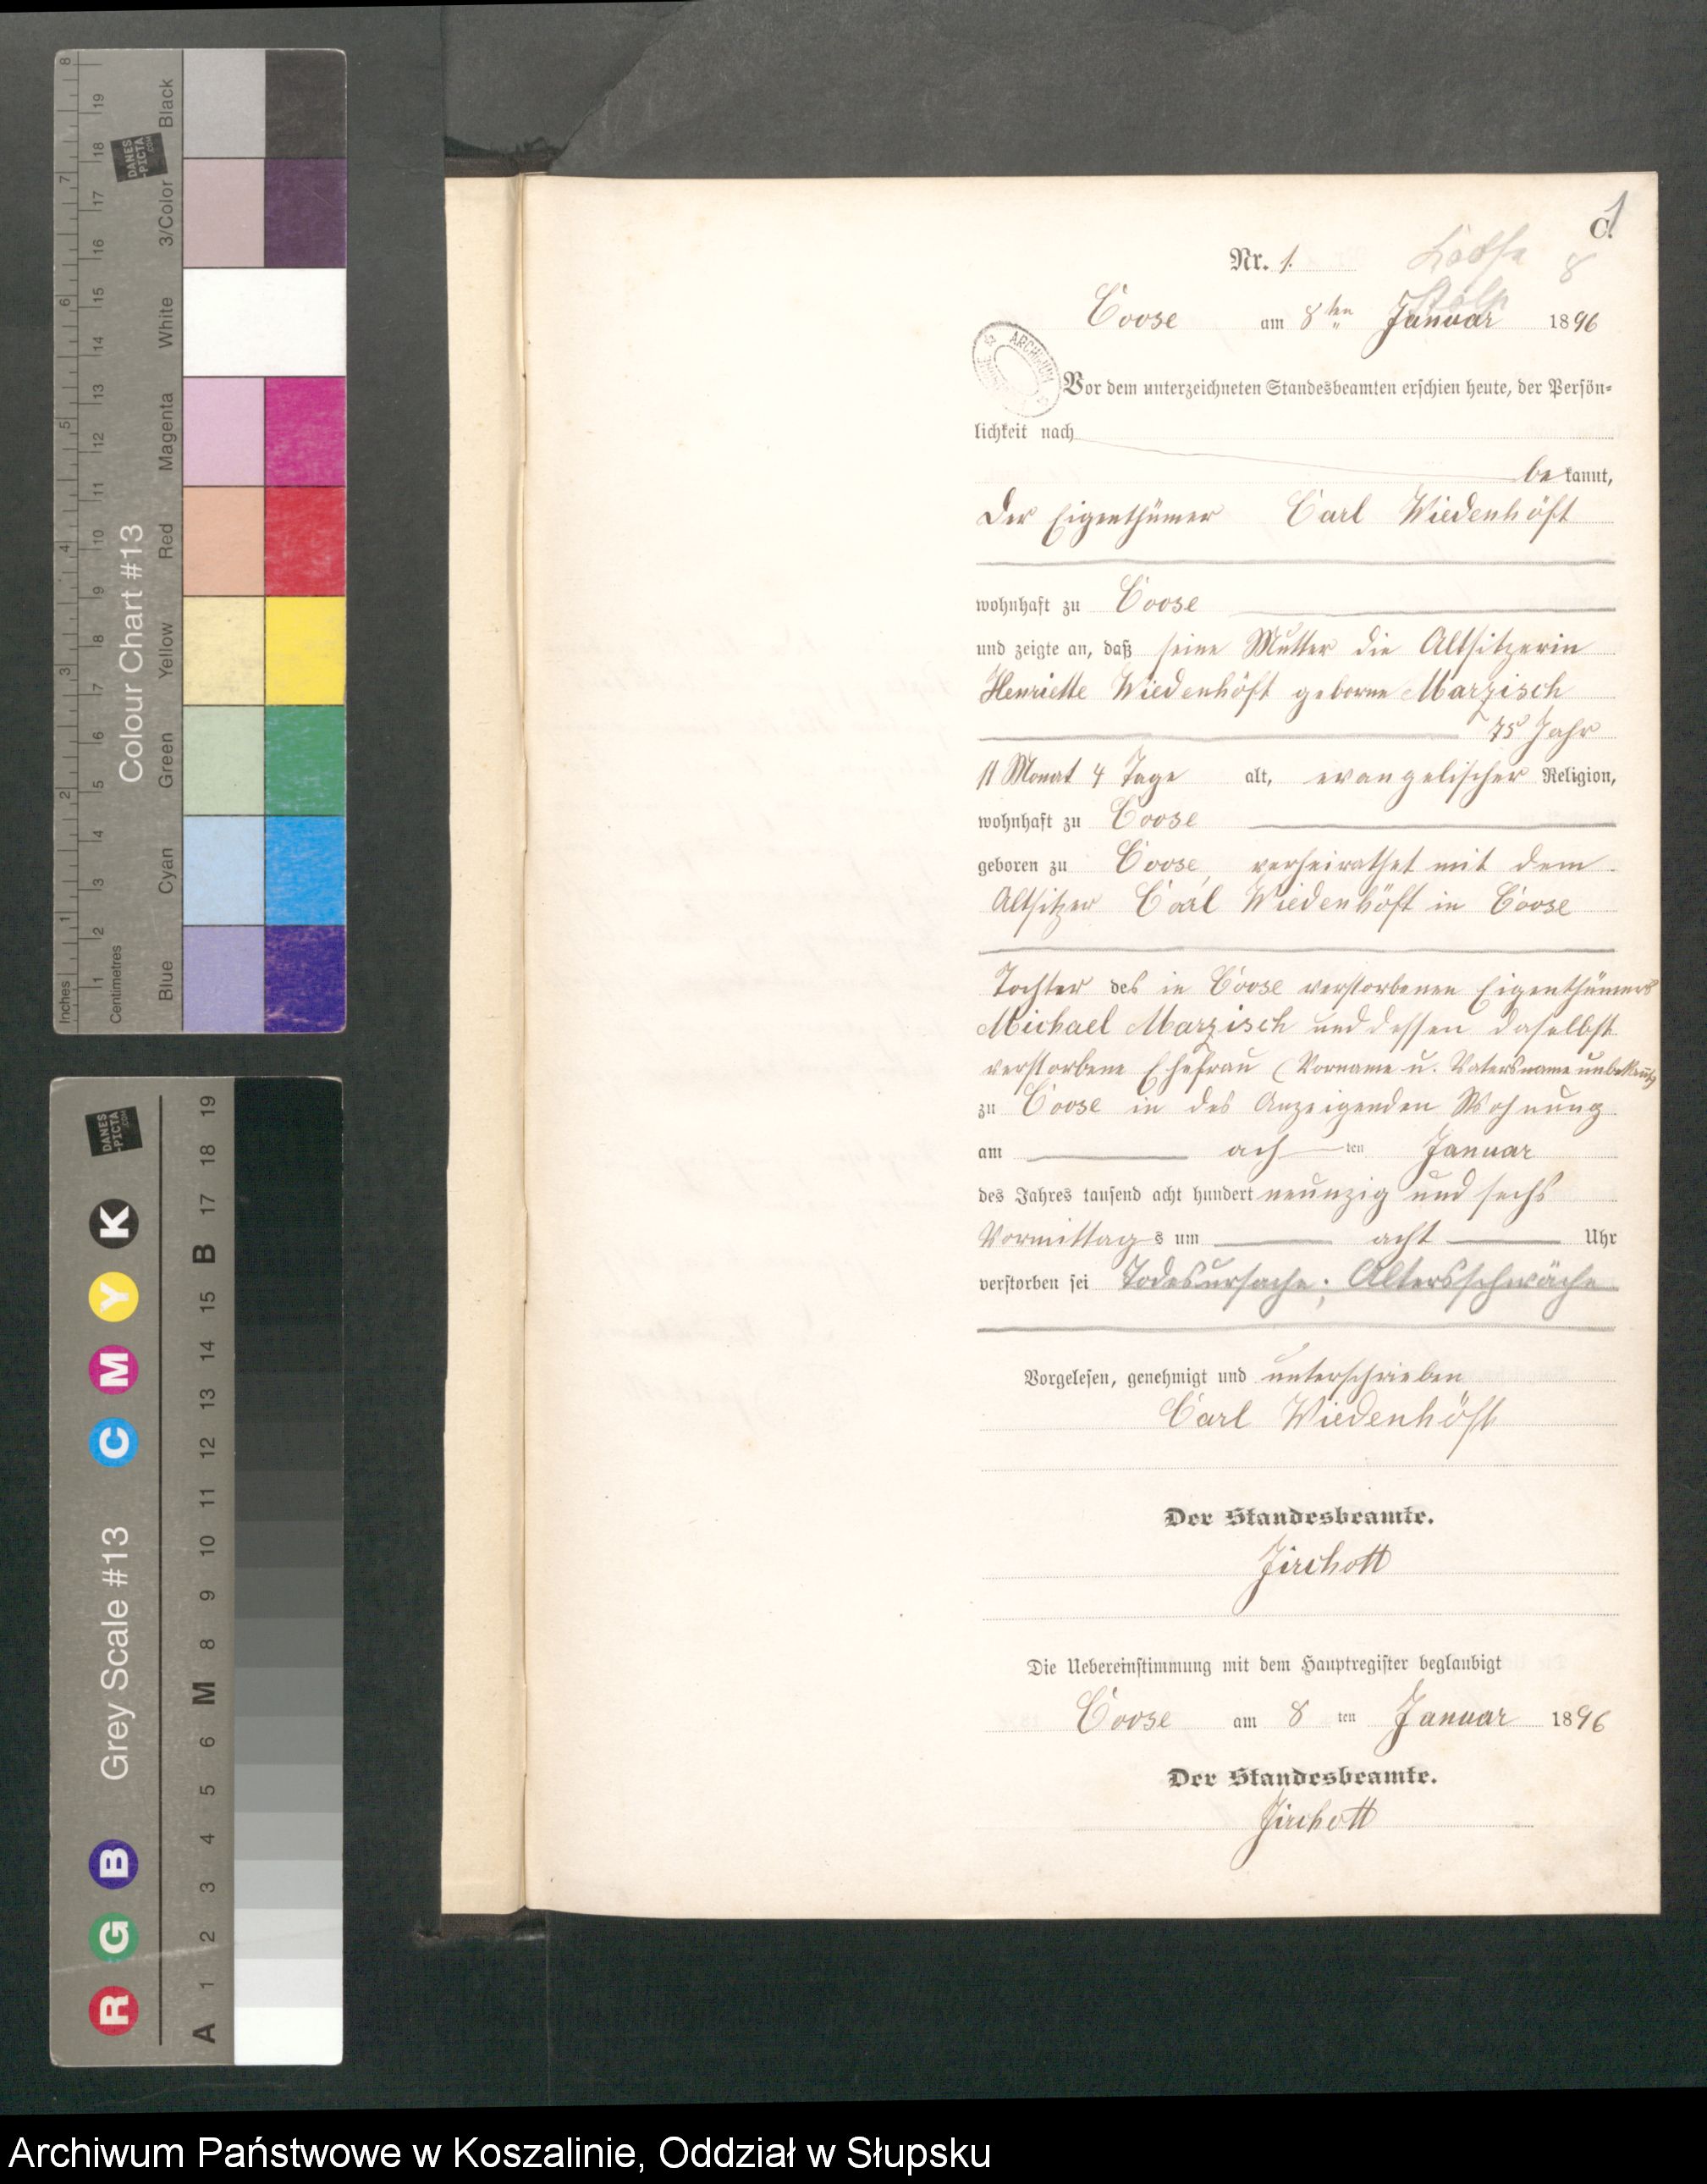 8 7 6 5 4 3 2 1 Inches
19 18 17 16 15 14 13 12 11 10 9 8 7 6 5 4 3 2 1 Centimetres
DANES
-PICTA
.COM
Colour Chart #13
Blue Cyan Green Yellow Red Magenta White 3/Color Black
DANES
-PICTA
.COM
Grey Scale #13
R G B C M Y K
A 1 2 3 4 5 6 M 8 9 10 11 12 13 14 15 B 17 18 19
C.
1
Nr. 1.
8
Coose am 8ten Januar 1896
ARCHIWUM
Vor dem unterzeichneten Standesbeamten erschien heute, der Persön-
lichkeit nach
be kannt,
der Eigenthümer Carl Wiedenhöft
wohnhaft zu Coose
und zeigte an, daß seine Mutter die Altsitzerin
Henriette Wiedenhöft geborne Marzisch
75 Jahr
11 Monat 4 Tage alt, evangelischer Religion,
wohnhaft zu Coose
geboren zu Coose, verheirathet mit dem
Altsitzer Carl Wiedenhöft in Coose
Tochter des in Coose verstorbenen Eigenthümers
Michael Marzisch und dessen daselbst
verstorbene Ehefrau (Vorname u. Vatersname unbekannt)
zu Coose in des Anzeigenden Wohnung
am ach ten Januar
des Jahres tausend acht hundert neunzig und sechs
Vormittag s um acht Uhr
verstorben sei Todesursache: Altersschwäche
Vorgelesen, genehmigt und unterschrieben
Carl Wiedenhöft
Der Standesbeamte.
Jirchott
Die Uebereinstimmung mit dem Hauptregister beglaubigt
Coose am 8 ten Januar 1896
Der Standesbeamte.
Jirchott
Archiwum Państwowe w Koszalinie, Oddział w Słupsku